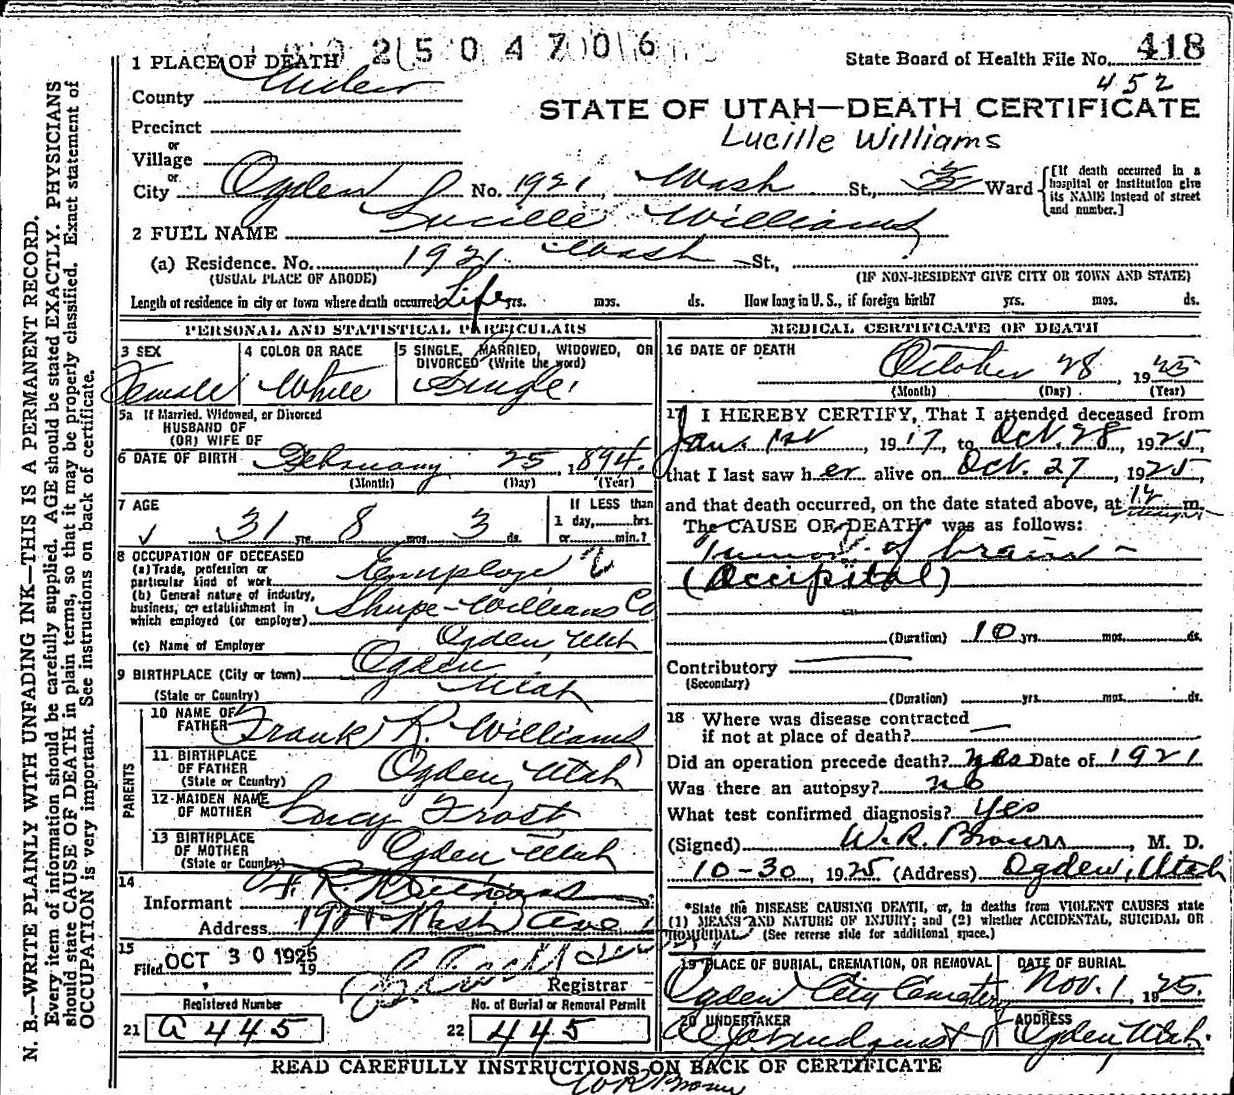 2504706
State Board of Health File No. 418
452
1 PLACE OF DEATH
County
STATE OF UTAH—DEATH CERTIFICATE
Lucille Williams
Precinct
or
Village
or
City Ogden No. 1921 Wash St., Ward
[If death occurred in a hospital or institution give its NAME instead of street and number.]
2 FULL NAME Lucille Williams
(a) Residence. No. 1921 Wash St.,
(USUAL PLACE OF ABODE) (IF NON-RESIDENT GIVE CITY OR TOWN AND STATE)
Length of residence in city or town where death occurred Life yrs. mos. ds. How long in U. S., if foreign birth? yrs. mos. ds.
PERSONAL AND STATISTICAL PARTICULARS
3 SEX
Female
4 COLOR OR RACE
White
5 SINGLE, MARRIED, WIDOWED, OR DIVORCED (Write the word)
Single
5a If Married, Widowed, or Divorced
HUSBAND OF
(OR) WIFE OF
6 DATE OF BIRTH February 25 1894
(Month) (Day) (Year)
7 AGE
31 yrs. 8 mos. 3 ds.
If LESS than
1 day, hrs.
or min.?
8 OCCUPATION OF DECEASED
(a) Trade, profession or
particular kind of work Employe
(b) General nature of industry,
business, or establishment in
which employed (or employer) Shupe-Williams Co
(c) Name of Employer Ogden, Utah
9 BIRTHPLACE (City or town) Ogden
(State or Country) Utah
PARENTS
10 NAME OF
FATHER Frank R. Williams
11 BIRTHPLACE
OF FATHER
(State or Country) Ogden, Utah
12 MAIDEN NAME
OF MOTHER Lucy Frost
13 BIRTHPLACE
OF MOTHER
(State or Country) Ogden Utah
14
Informant F. R. Williams
Address Wash Ave
15
Filed OCT 30 1925 19
Registrar
Registered Number
21 a 445
No. of Burial or Removal Permit
22 445
MEDICAL CERTIFICATE OF DEATH
16 DATE OF DEATH
October 28, 1925
(Month) (Day) (Year)
17 I HEREBY CERTIFY, That I attended deceased from
Jan. 1st 1917, to Oct. 28, 1925,
that I last saw her alive on Oct. 27, 1925,
and that death occurred, on the date stated above, at 12 m.
The CAUSE OF DEATH* was as follows:
Tumor of brain -
(Occipital)
(Duration) 10 yrs. mos. ds.
Contributory
(Secondary)
(Duration) yrs. mos. ds.
18 Where was disease contracted
if not at place of death?
Did an operation precede death? yes Date of 1921
Was there an autopsy? no
What test confirmed diagnosis? yes
(Signed) W. R. Brown, M. D.
10-30, 1925 (Address) Ogden, Utah
*State the DISEASE CAUSING DEATH, or, in deaths from VIOLENT CAUSES state
(1) MEANS AND NATURE OF INJURY; and (2) whether ACCIDENTAL, SUICIDAL OR
HOMICIDAL. (See reverse side for additional space.)
19 PLACE OF BURIAL, CREMATION, OR REMOVAL
Ogden City Cemetery
DATE OF BURIAL
Nov. 1, 1925.
20 UNDERTAKER
ADDRESS
Ogden, Utah.
READ CAREFULLY INSTRUCTIONS ON BACK OF CERTIFICATE
W R Brown
N. B.—WRITE PLAINLY WITH UNFADING INK—THIS IS A PERMANENT RECORD.
Every item of information should be carefully supplied. AGE should be stated EXACTLY. PHYSICIANS
should state CAUSE OF DEATH in plain terms, so that it may be properly classified. Exact statement of
OCCUPATION is very important. See instructions on back of certificate.